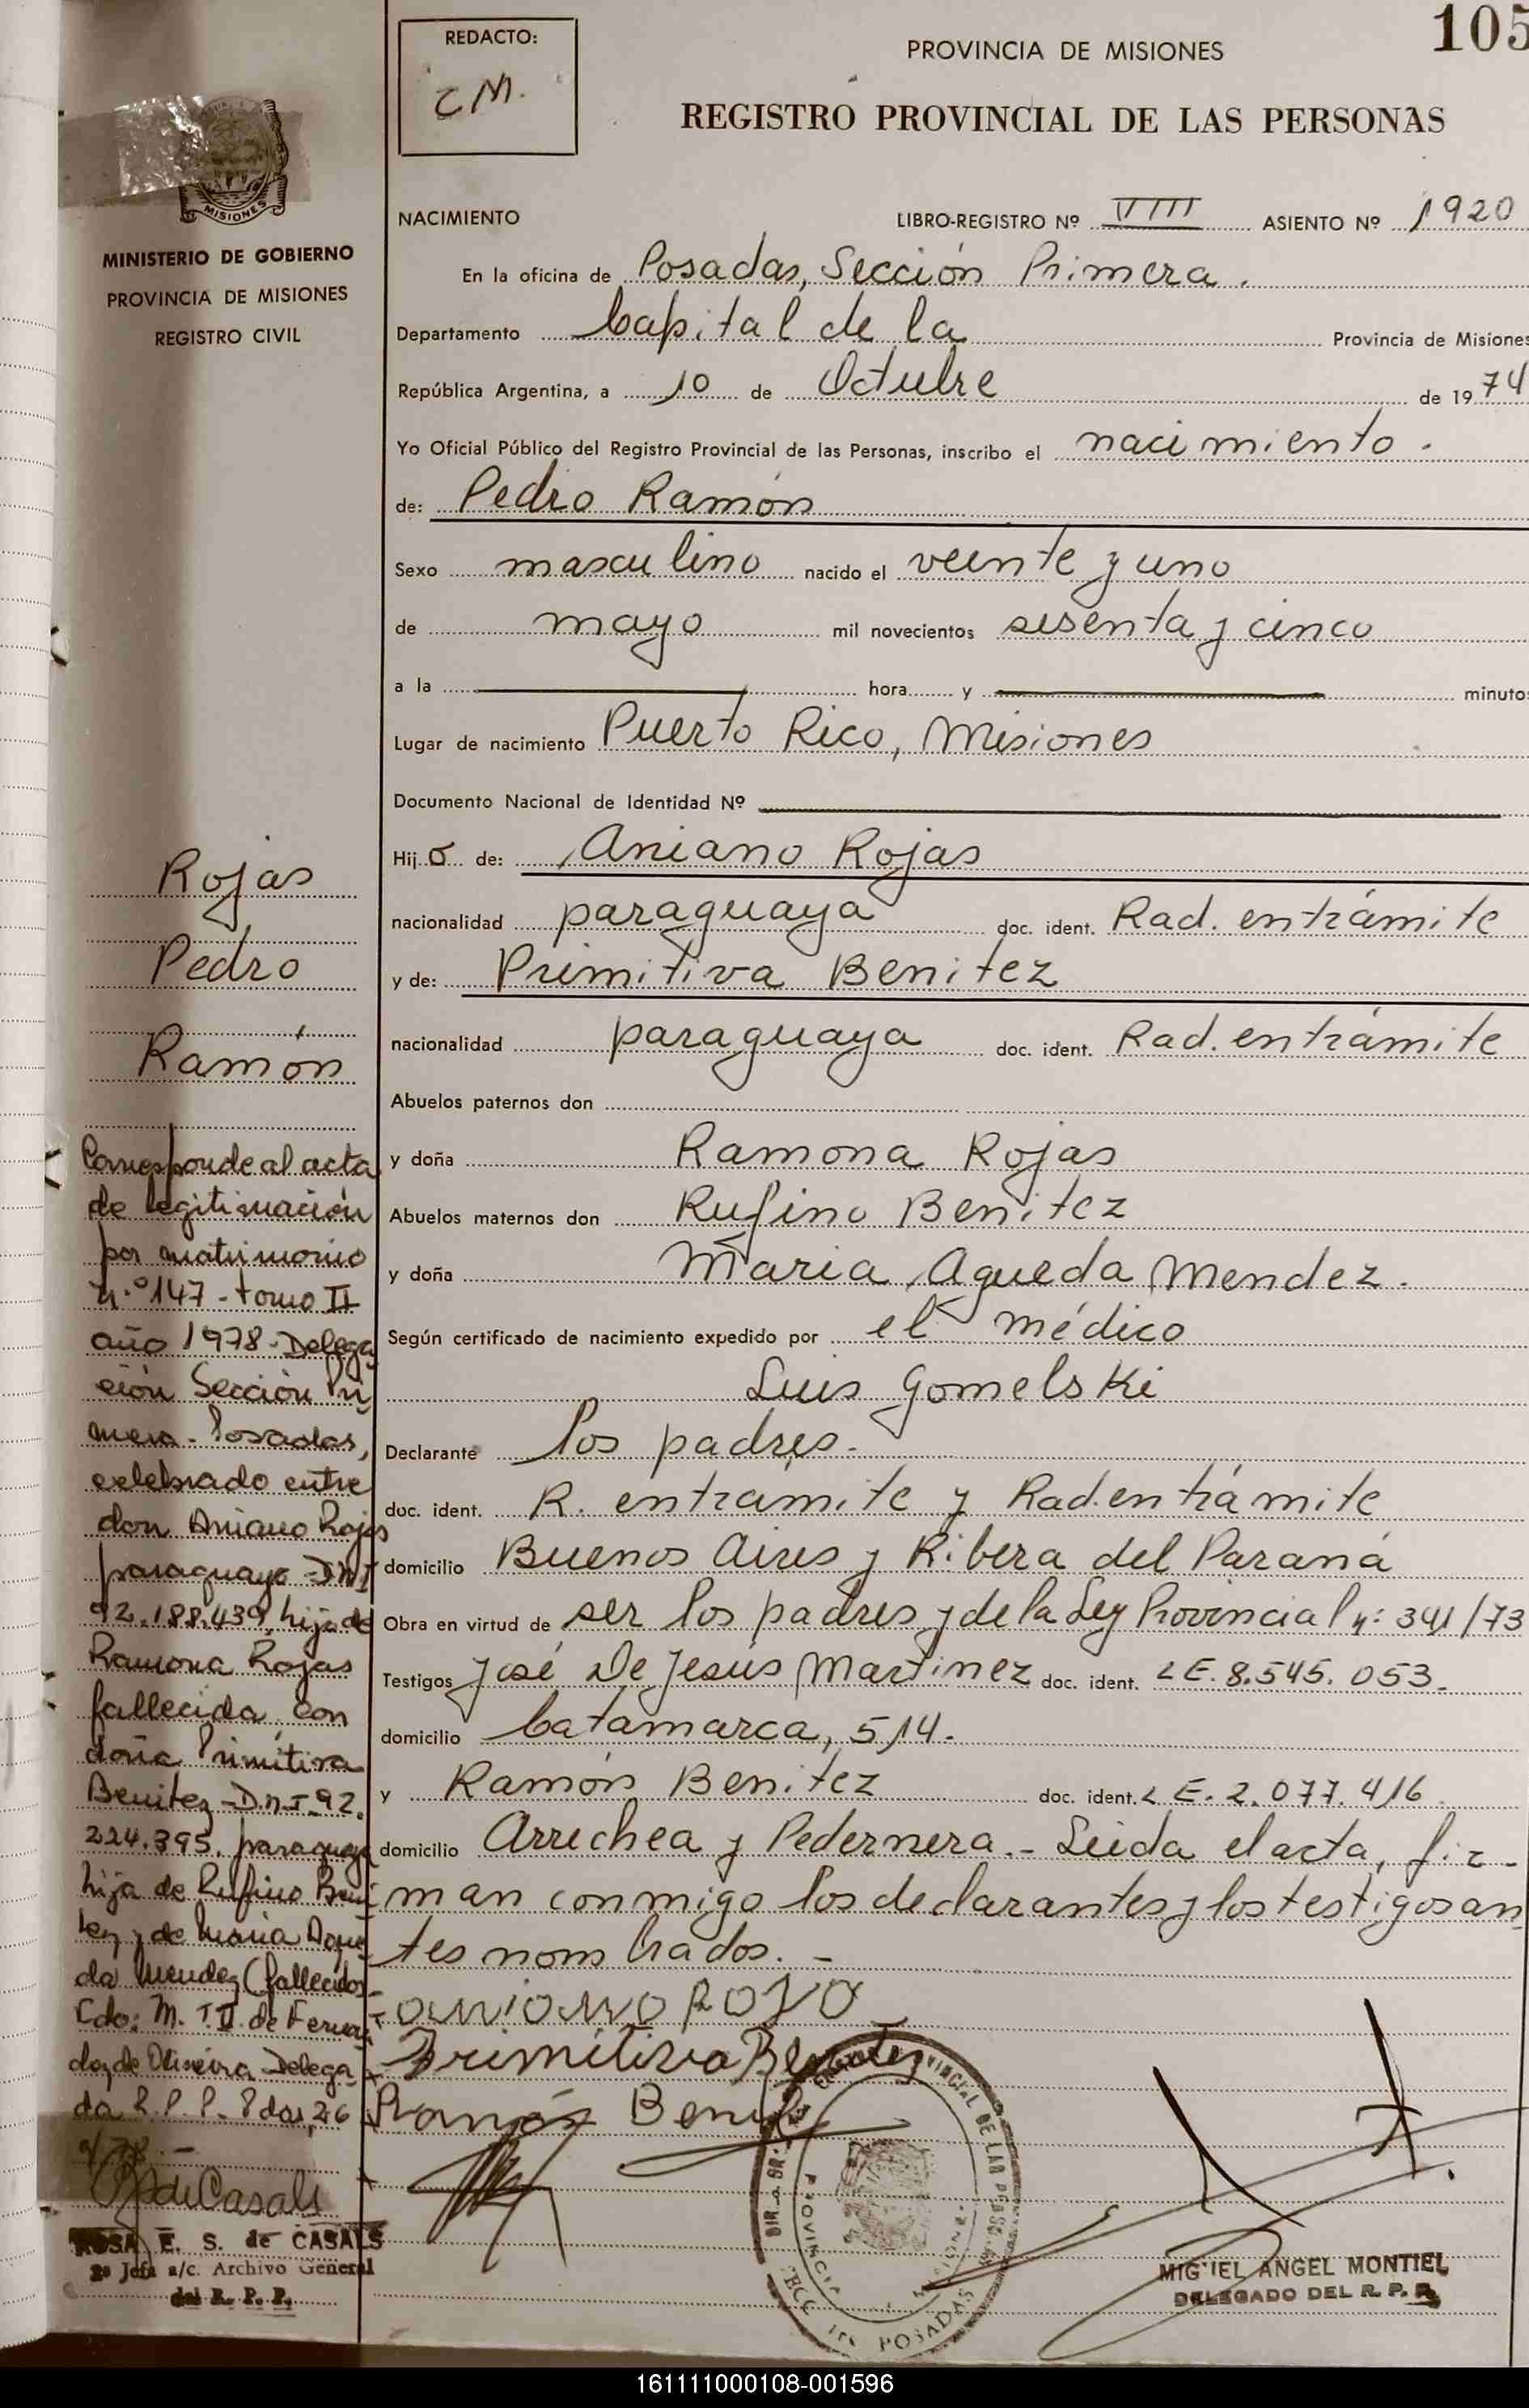 105
REDACTO:
CM.
PROVINCIA DE MISIONES
REGISTRO PROVINCIAL DE LAS PERSONAS
MISIONES
MINISTERIO DE GOBIERNO
PROVINCIA DE MISIONES
REGISTRO CIVIL
NACIMIENTO LIBRO-REGISTRO Nº VIII ASIENTO Nº 1920
En la oficina de Posadas, Sección Primera.
Departamento Capital de la Provincia de Misiones
República Argentina, a 10 de Octubre de 1974
Yo Oficial Público del Registro Provincial de las Personas, inscribo el nacimiento.
de: Pedro Ramón
Sexo masculino nacido el veinte y uno
de mayo mil novecientos sesenta y cinco
a la hora y minuto
Lugar de nacimiento Puerto Rico, Misiones
Documento Nacional de Identidad Nº
Hijo de: Aniano Rojas
nacionalidad paraguaya doc. ident. Rad. entrámite
y de: Primitiva Benitez
nacionalidad paraguaya doc. ident. Rad. entrámite
Abuelos paternos don
y doña Ramona Rojas
Abuelos maternos don Rufino Benitez
y doña Maria Agueda Mendez.
Según certificado de nacimiento expedido por el médico
Luis Gomelski
Declarante los padres.
doc. ident. R. entramite y Rad. entrámite
domicilio Buenos Aires y Ribera del Paraná
Obra en virtud de ser los padres y de la Ley Provincial nº: 341/73
Testigos José De Jesús Martinez doc. ident. LE. 8.545.053.
domicilio Catamarca, 514.
y Ramón Benitez doc. ident. L E. 2.077.416
domicilio Arrechea y Pedernera.- Leida el acta, fir-
man conmigo los declarantes y los testigos an
tes nombrados.-
aniano Rojo
Primitiva Benitez
Ramón Benitez
Rojas
Pedro
Ramón
Corresponde al acta
de legitimación
por matrimonio
n.º 147 - tomo II
año 1978 - Delega
ción Sección Pri
mera - Posadas,
celebrado entre
don Aniano Rojas
paraguayo - DNI
92.188.439, hijo de
Ramona Rojas
fallecida, con
doña Primitiva
Benitez - D.N.I. 92.
224.395. paraguaya
hija de Rufino Beni
tez y de Maria Ague
da Mendez (fallecidos-
Fdo: M. T. II. de Fernan
dez de Oliveira - Delega
da R.P.P. Pdas, 26
9/78.-
de Casals
ROSA E. S. de CASALS
2ª Jefa a/c. Archivo General
del R. P. P.
PROVINCIAL DE LAS
PROVINCIA
POSADAS
MIGUEL ANGEL MONTIEL
DELEGADO DEL R. P. P.
161111000108-001596